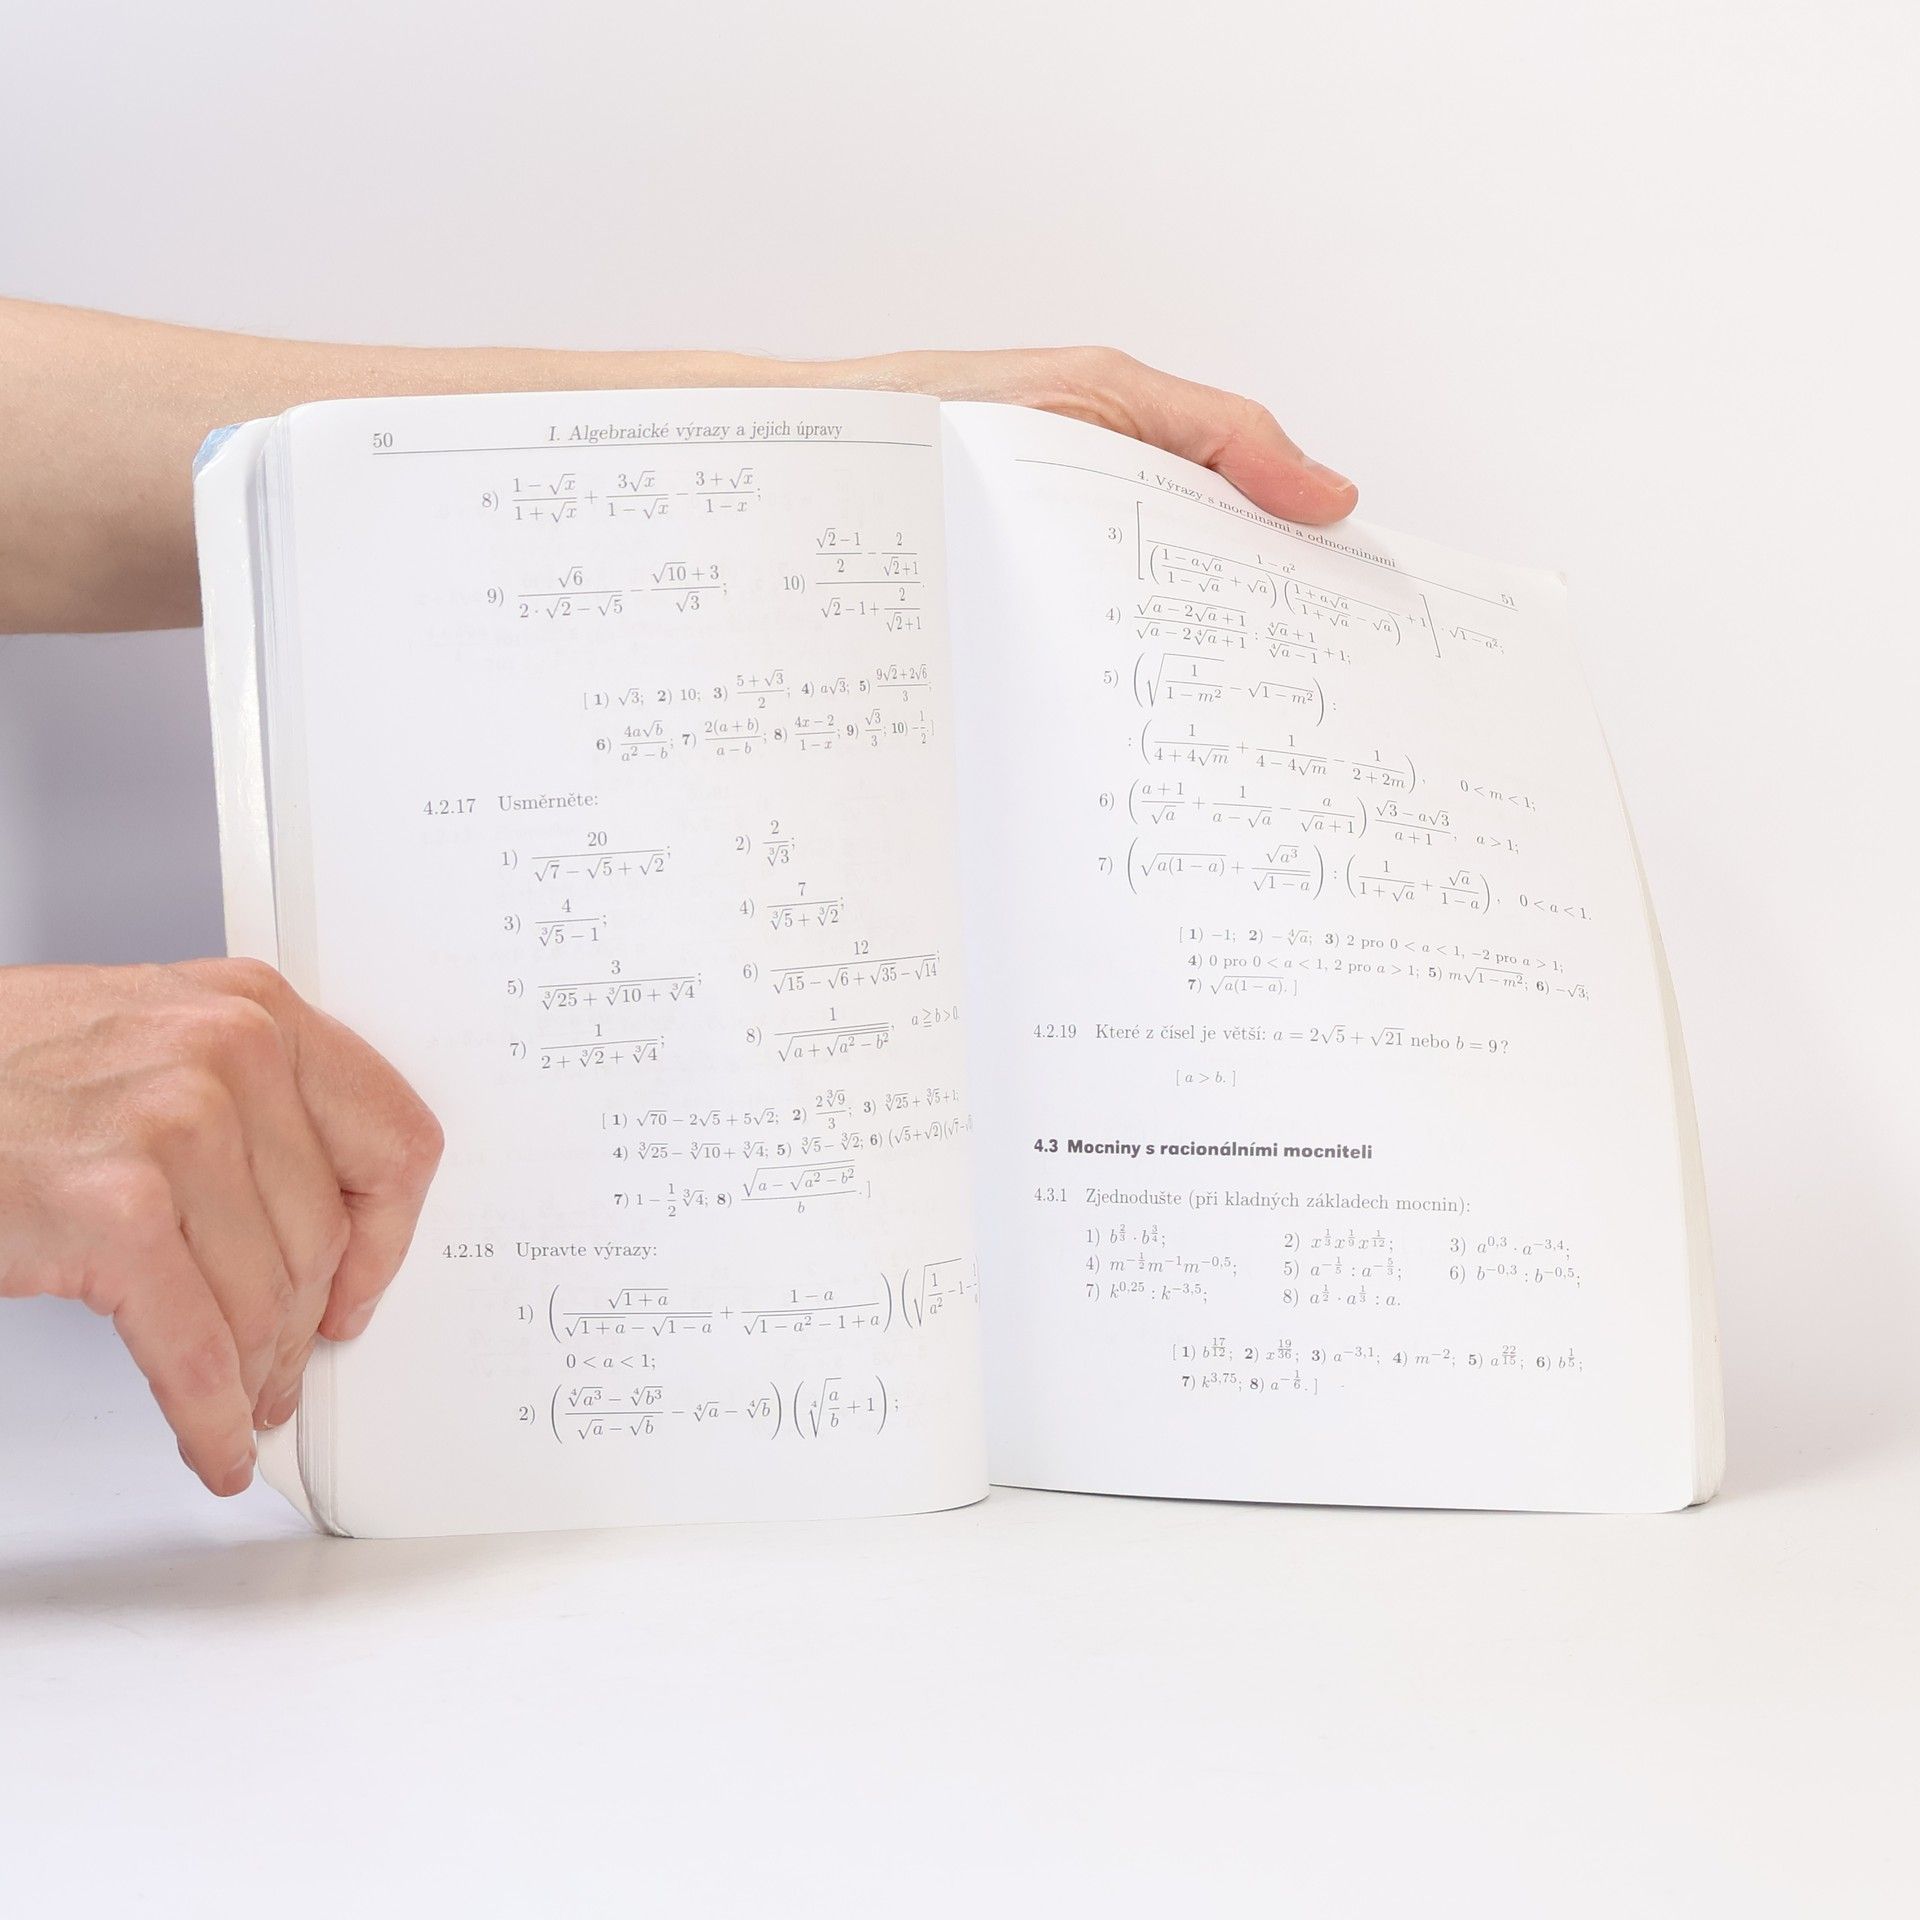 50 I. Algebraické výrazy a jejich úpravy
8) \frac{1-\sqrt{x}}{1+\sqrt{x}} + \frac{3\sqrt{x}}{1-\sqrt{x}} - \frac{3+\sqrt{x}}{1-x};
9) \frac{\sqrt{6}}{2\cdot\sqrt{2}-\sqrt{5}} - \frac{\sqrt{10}+3}{\sqrt{3}}; 10) \frac{\frac{\sqrt{2}-1}{2}-\frac{2}{\sqrt{2}+1}}{\sqrt{2}-1+\frac{2}{\sqrt{2}+1}}.
[ 1) \sqrt{3}; 2) 10; 3) \frac{5+\sqrt{3}}{2}; 4) a\sqrt{3}; 5) \frac{9\sqrt{2}+2\sqrt{6}}{3};
6) \frac{4a\sqrt{b}}{a^2-b}; 7) \frac{2(a+b)}{a-b}; 8) \frac{4x-2}{1-x}; 9) \frac{\sqrt{3}}{3}; 10) -\frac{1}{2}. ]
4.2.17 Usměrněte:
1) \frac{20}{\sqrt{7}-\sqrt{5}+\sqrt{2}}; 2) \frac{2}{\sqrt[3]{3}};
3) \frac{4}{\sqrt[3]{5}-1}; 4) \frac{7}{\sqrt[3]{5}+\sqrt[3]{2}};
5) \frac{3}{\sqrt[3]{25}+\sqrt[3]{10}+\sqrt[3]{4}}; 6) \frac{12}{\sqrt{15}-\sqrt{6}+\sqrt{35}-\sqrt{14}};
7) \frac{1}{2+\sqrt[3]{2}+\sqrt[3]{4}}; 8) \frac{1}{\sqrt{a+\sqrt{a^2-b^2}}}, a ≧ b > 0.
[ 1) \sqrt{70}-2\sqrt{5}+5\sqrt{2}; 2) \frac{2\sqrt[3]{9}}{3}; 3) \sqrt[3]{25}+\sqrt[3]{5}+1;
4) \sqrt[3]{25}-\sqrt[3]{10}+\sqrt[3]{4}; 5) \sqrt[3]{5}-\sqrt[3]{2}; 6) (\sqrt{5}+\sqrt{2})(\sqrt{7}-
7) 1-\frac{1}{2}\sqrt[3]{4}; 8) \frac{\sqrt{a-\sqrt{a^2-b^2}}}{b}. ]
4.2.18 Upravte výrazy:
1) \left(\frac{\sqrt{1+a}}{\sqrt{1+a}-\sqrt{1-a}} + \frac{1-a}{\sqrt{1-a^2}-1+a}\right)\left(\sqrt{\frac{1}{a^2}-1}-
0 < a < 1;
2) \left(\frac{\sqrt[4]{a^3}-\sqrt[4]{b^3}}{\sqrt{a}-\sqrt{b}} - \sqrt[4]{a}-\sqrt[4]{b}\right)\left(\sqrt[4]{\frac{a}{b}}+1\right);
4. Výrazy s mocninami a odmocninami 51
3) \left[\frac{1-a^2}{\left(\frac{1-a\sqrt{a}}{1-\sqrt{a}}+\sqrt{a}\right)\left(\frac{1+a\sqrt{a}}{1+\sqrt{a}}-\sqrt{a}\right)}+1\right]\cdot\sqrt{1-a^2};
4) \frac{\sqrt{a-2\sqrt{a}+1}}{\sqrt{a}-2\sqrt[4]{a}+1} : \frac{\sqrt[4]{a}+1}{\sqrt[4]{a}-1}+1;
5) \left(\sqrt{\frac{1}{1-m^2}}-\sqrt{1-m^2}\right) :
: \left(\frac{1}{4+4\sqrt{m}}+\frac{1}{4-4\sqrt{m}}-\frac{1}{2+2m}\right), 0 < m < 1;
6) \left(\frac{a+1}{\sqrt{a}}+\frac{1}{a-\sqrt{a}}-\frac{a}{\sqrt{a}+1}\right)\frac{\sqrt{3}-a\sqrt{3}}{a+1}, a > 1;
7) \left(\sqrt{a(1-a)}+\frac{\sqrt{a^3}}{\sqrt{1-a}}\right) : \left(\frac{1}{1+\sqrt{a}}+\frac{\sqrt{a}}{1-a}\right), 0 < a < 1.
[ 1) -1; 2) -\sqrt[4]{a}; 3) 2 pro 0 < a < 1, -2 pro a > 1;
4) 0 pro 0 < a < 1, 2 pro a > 1; 5) m\sqrt{1-m^2}; 6) -\sqrt{3};
7) \sqrt{a(1-a)}. ]
4.2.19 Které z čísel je větší: a = 2\sqrt{5}+\sqrt{21} nebo b = 9?
[ a > b. ]
4.3 Mocniny s racionálními mocniteli
4.3.1 Zjednodušte (při kladných základech mocnin):
1) b^{\frac{2}{3}} \cdot b^{\frac{3}{4}}; 2) x^{\frac{1}{3}} x^{\frac{1}{9}} x^{\frac{1}{12}}; 3) a^{0,3} \cdot a^{-3,4};
4) m^{-\frac{1}{2}} m^{-1} m^{-0,5}; 5) a^{-\frac{1}{5}} : a^{-\frac{5}{3}}; 6) b^{-0,3} : b^{-0,5};
7) k^{0,25} : k^{-3,5}; 8) a^{\frac{1}{2}} \cdot a^{\frac{1}{3}} : a.
[ 1) b^{\frac{17}{12}}; 2) x^{\frac{19}{36}}; 3) a^{-3,1}; 4) m^{-2}; 5) a^{\frac{22}{15}}; 6) b^{\frac{1}{5}};
7) k^{3,75}; 8) a^{-\frac{1}{6}}. ]